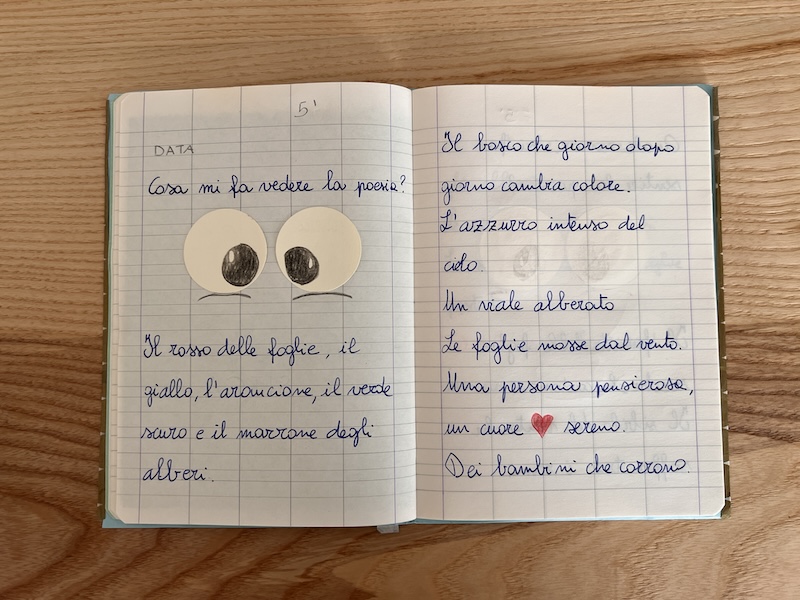 5'
DATA
Cosa mi fa vedere la poesia?
Il rosso delle foglie, il
giallo, l'arancione, il verde
scuro e il marrone degli
alberi.
Il bosco che giorno dopo
giorno cambia colore.
L'azzurro intenso del
cielo.
Un viale alberato
Le foglie mosse dal vento.
Una persona pensierosa,
un cuore sereno.
Dei bambini che corrono.